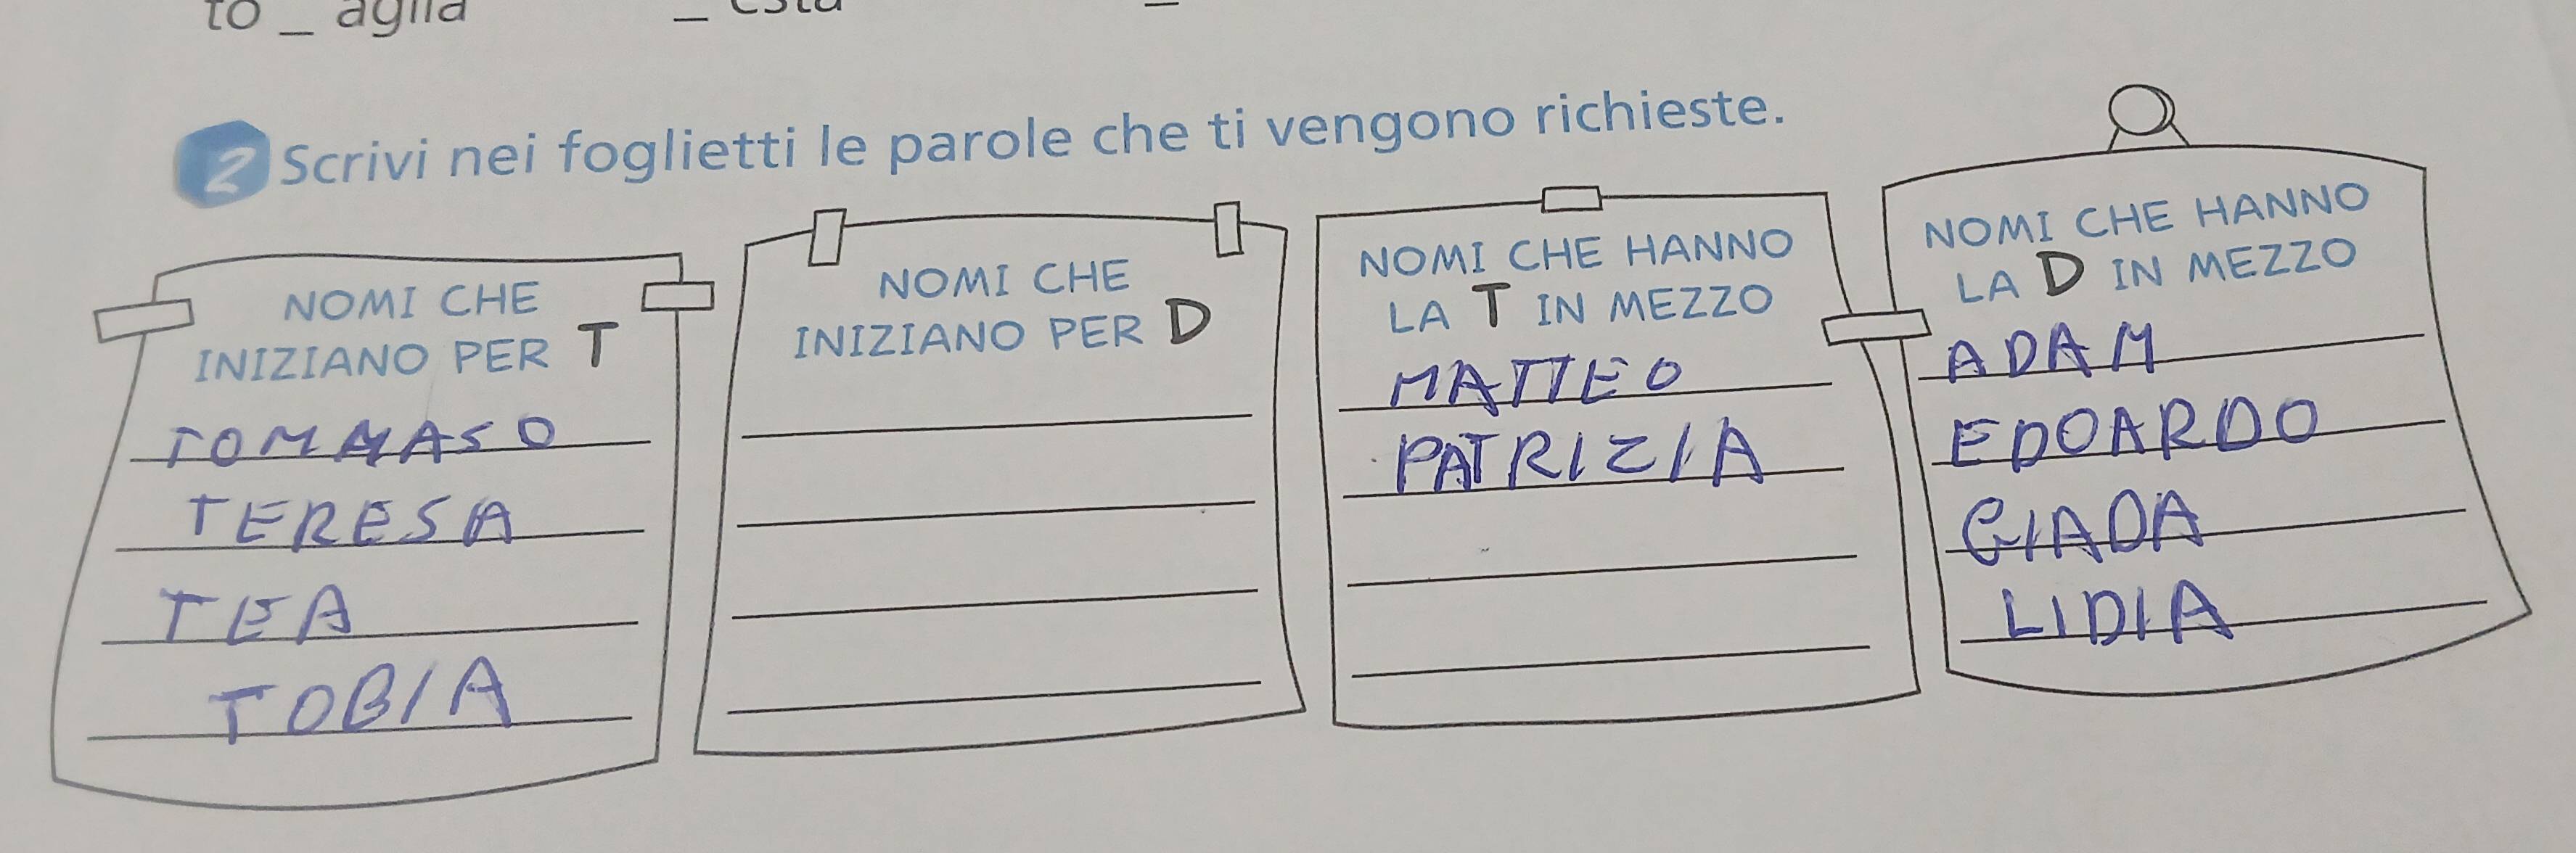 to _ aglia _ esta _
2 Scrivi nei foglietti le parole che ti vengono richieste.
NOMI CHE
INIZIANO PER T
TOMMASO
TERESA
TEA
TOBIA
NOMI CHE
INIZIANO PER D
NOMI CHE HANNO
LA T IN MEZZO
MATTEO
PATRIZIA
NOMI CHE HANNO
LA D IN MEZZO
ADAM
EDOARDO
GIADA
LIDIA